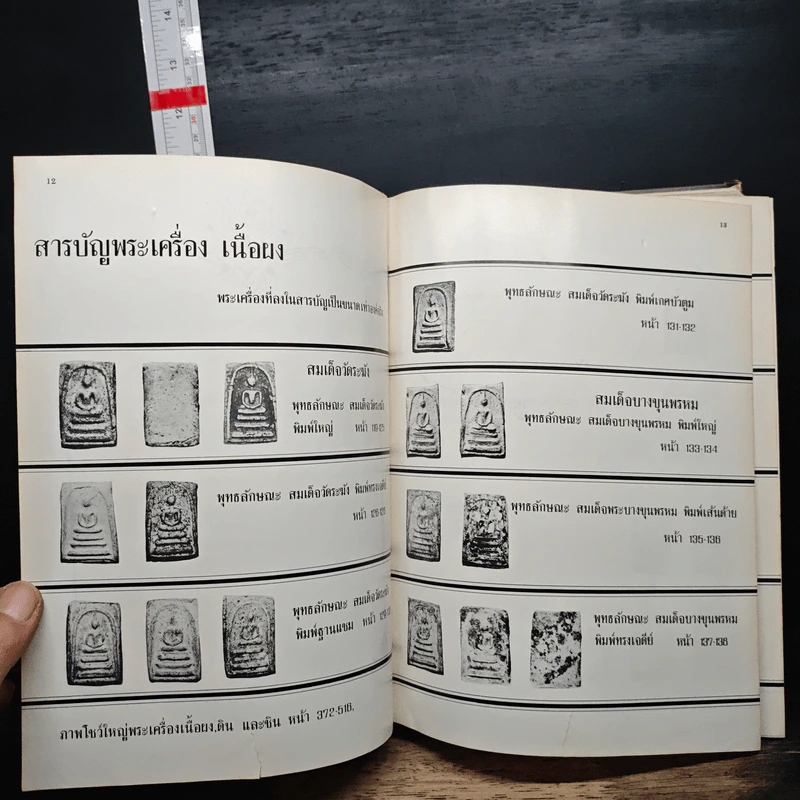 14
13
12
12
สารบัญพระเครื่อง เนื้อผง
พระเครื่องที่ลงในสารบัญเป็นขนาด
สมเด็จวัดระฆัง
พุทธลักษณะ สมเด็จวัดระฆัง
พิมพ์ใหญ่ หน้า
พุทธลักษณะ สมเด็จวัดระฆัง พิมพ์ทรงเจดีย์
หน้า
พุทธลักษณะ สมเด็จวัดระฆัง
พิมพ์ฐานแซม หน้า
ภาพโชว์ใหญ่พระเครื่องเนื้อผง,ดิน และชิน หน้า 372-516.
13
พุทธลักษณะ สมเด็จวัดระฆัง พิมพ์เกศบัวตูม
หน้า 131-132
สมเด็จบางขุนพรหม
พุทธลักษณะ สมเด็จบางขุนพรหม พิมพ์ใหญ่
หน้า 133-134
พุทธลักษณะ สมเด็จพระบางขุนพรหม พิมพ์เส้นด้าย
หน้า 135-136
พุทธลักษณะ สมเด็จบางขุนพรหม
พิมพ์ทรงเจดีย์ หน้า 137-138